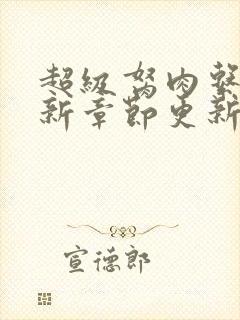 超级驽肉
新章節更新
宣德郎